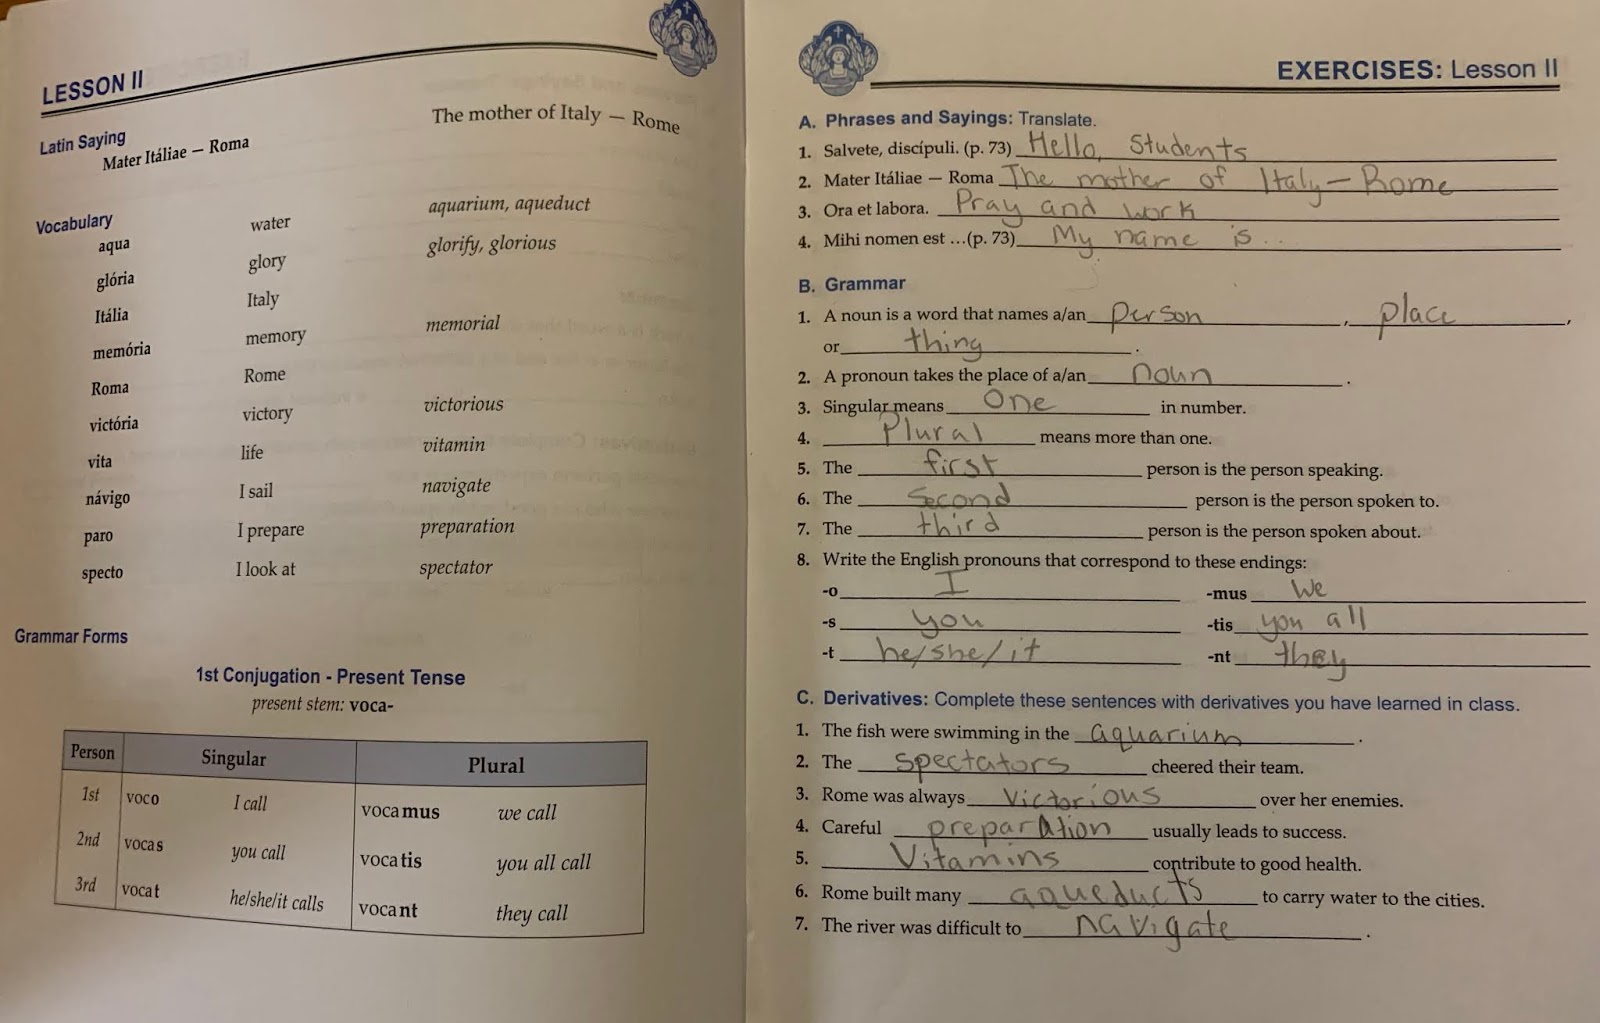 LESSON II
Latin Saying
Mater Itáliae — Roma The mother of Italy — Rome
Vocabulary
aqua water aquarium, aqueduct
glória glory glorify, glorious
Itália Italy
memória memory memorial
Roma Rome
victória victory victorious
vita life vitamin
návigo I sail navigate
paro I prepare preparation
specto I look at spectator
Grammar Forms
1st Conjugation - Present Tense
present stem: voca-
Person Singular Plural
1st voco I call vocamus we call
2nd vocas you call vocatis you all call
3rd vocat he/she/it calls vocant they call
EXERCISES: Lesson II
A. Phrases and Sayings: Translate.
1. Salvete, discípuli. (p. 73) Hello, Students
2. Mater Itáliae — Roma The mother of Italy – Rome
3. Ora et labora. Pray and work
4. Mihi nomen est ...(p. 73) My name is ..
B. Grammar
1. A noun is a word that names a/an person, place,
or thing.
2. A pronoun takes the place of a/an noun.
3. Singular means One in number.
4. Plural means more than one.
5. The first person is the person speaking.
6. The Second person is the person spoken to.
7. The third person is the person spoken about.
8. Write the English pronouns that correspond to these endings:
-o I -mus We
-s you -tis you all
-t he/she/it -nt they
C. Derivatives: Complete these sentences with derivatives you have learned in class.
1. The fish were swimming in the aquarium.
2. The spectators cheered their team.
3. Rome was always Victorious over her enemies.
4. Careful preparation usually leads to success.
5. Vitamins contribute to good health.
6. Rome built many aqueducts to carry water to the cities.
7. The river was difficult to navigate.